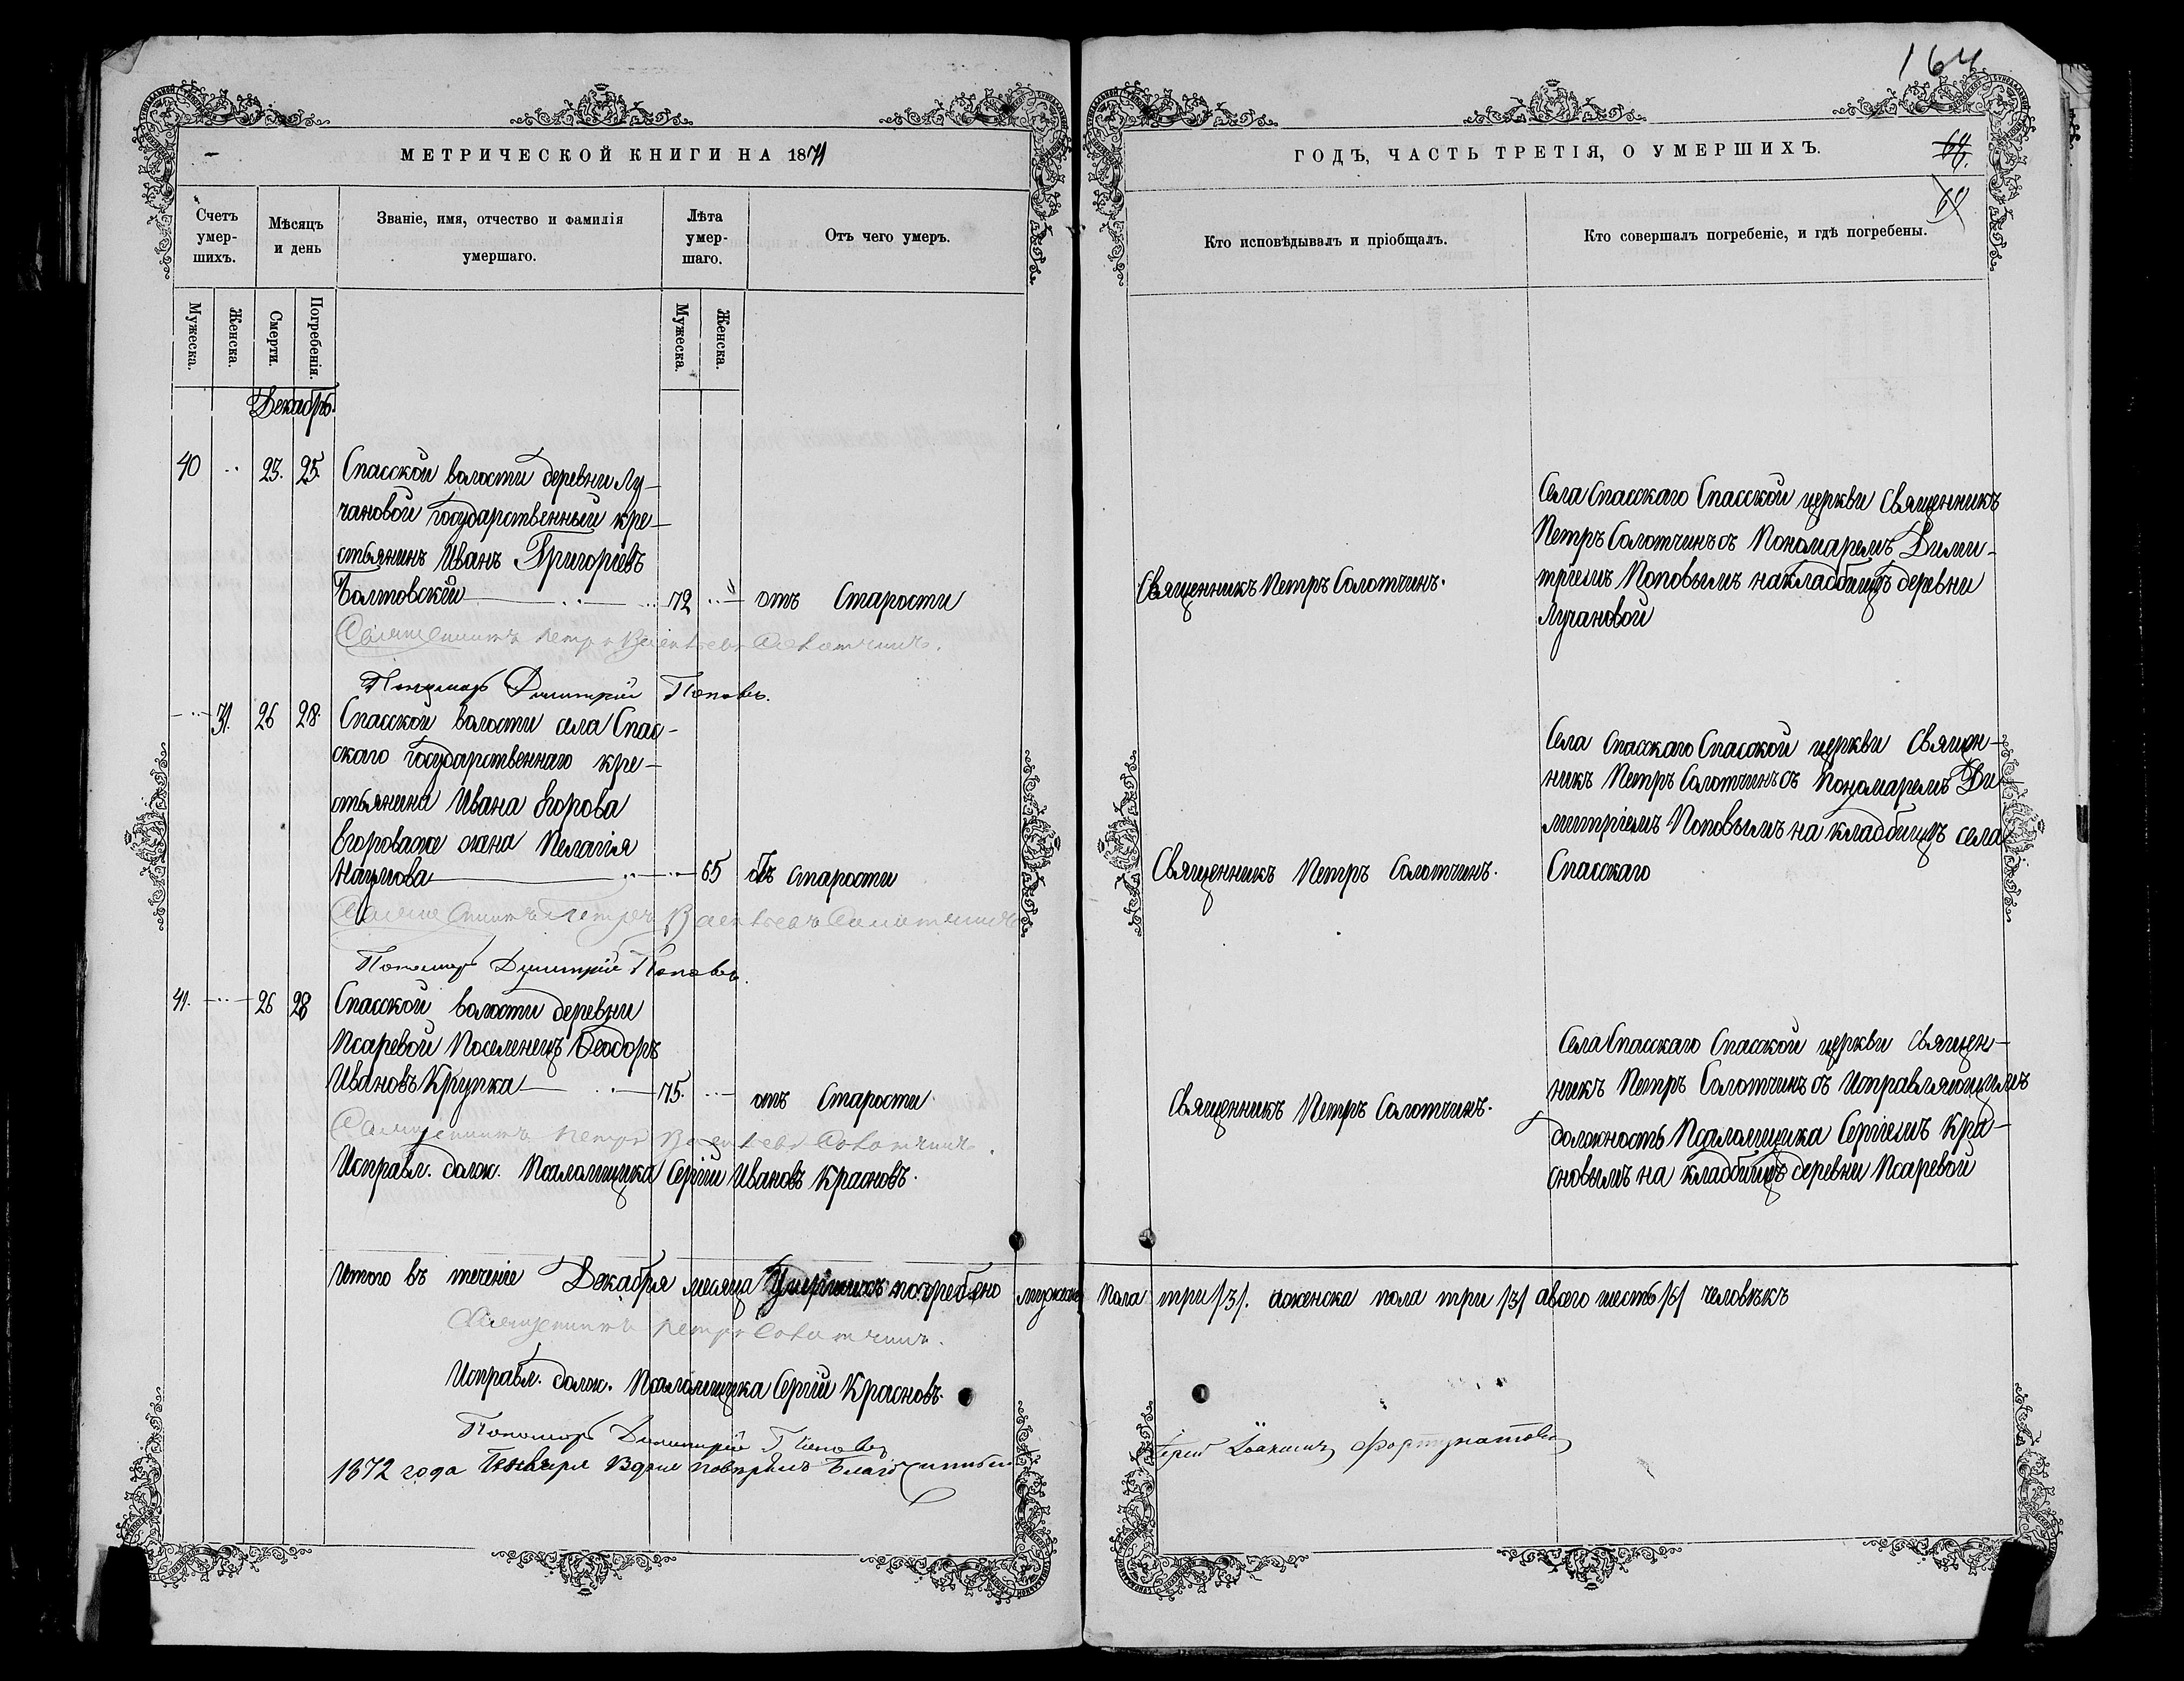 164
МЕТРИЧЕСКОЙ КНИГИ НА 1871
Счетъ умер-шихъ.
Мѣсяцъ и день
Званіе, имя, отчество и фамилія умершаго.
Лѣта умер-шаго.
Отъ чего умеръ.
Мужеска.
Женска.
Смерти.
Погребенія.
Мужеска.
Женска.
Декабрь
40 23. 25. Спасской волости деревни Лу-
чановой государственный кре-
стьянинъ Иванъ Григорьевъ
Болтовскій 72 отъ Старости
Священникъ Петръ Васильевъ Солотчинъ.
Пономарь Димитрій Поповъ.
31. 26 28. Спасской волости села Спас-
скаго государственнаго кре-
стьянина Ивана Егорова
Егорова жена Пелагія
Наумова 65 отъ старости
Священникъ Петръ Васильевъ Солотчинъ
Пономарь Димитрій Поповъ.
41. 26 28 Спасской волости деревни
Псаревой Поселенецъ Ѳеодоръ
Ивановъ Крупка 75. отъ Старости
Священникъ Петръ Васильевъ Солотчинъ.
Исправл. долж. Псаломщика Сергій Ивановъ Красновъ.
Итого въ теченіе Декабря месяца Умершихъ погребено мужеска
Священникъ Петръ Солотчинъ.
Исправл. долж. Псаломщика Сергій Красновъ.
Пономарь Димитрій Поповъ
1872 года Генваря дня повѣрялъ Благочинный
ГОДЪ, ЧАСТЬ ТРЕТІЯ, О УМЕРШИХЪ.
Кто исповѣдывалъ и пріобщалъ.
Кто совершалъ погребеніе, и гдѣ погребены.
Священникъ Петръ Солотчинъ.
Села Спасскаго Спасской церкви Священникъ
Петръ Солотчинъ съ Пономаремъ Дими-
тріемъ Поповымъ на кладбищѣ деревни
Лучановой
Священникъ Петръ Солотчинъ.
Села Спасскаго Спасской церкви Священ-
никъ Петръ Солотчинъ съ Пономаремъ Ди
митріемъ Поповымъ на кладбищѣ села
Спасскаго
Священникъ Петръ Солотчинъ.
Села Спасскаго Спасской церкви Священ-
никъ Петръ Солотчинъ съ Исправляющимъ
должность Псаломщика Сергіемъ Кра-
сновымъ на кладбищѣ деревни Псаревой
Пола три /3/. а женска пола три /3/ а всего шесть /6/ человѣкъ
Іерей Іоакимъ Фортунатовъ